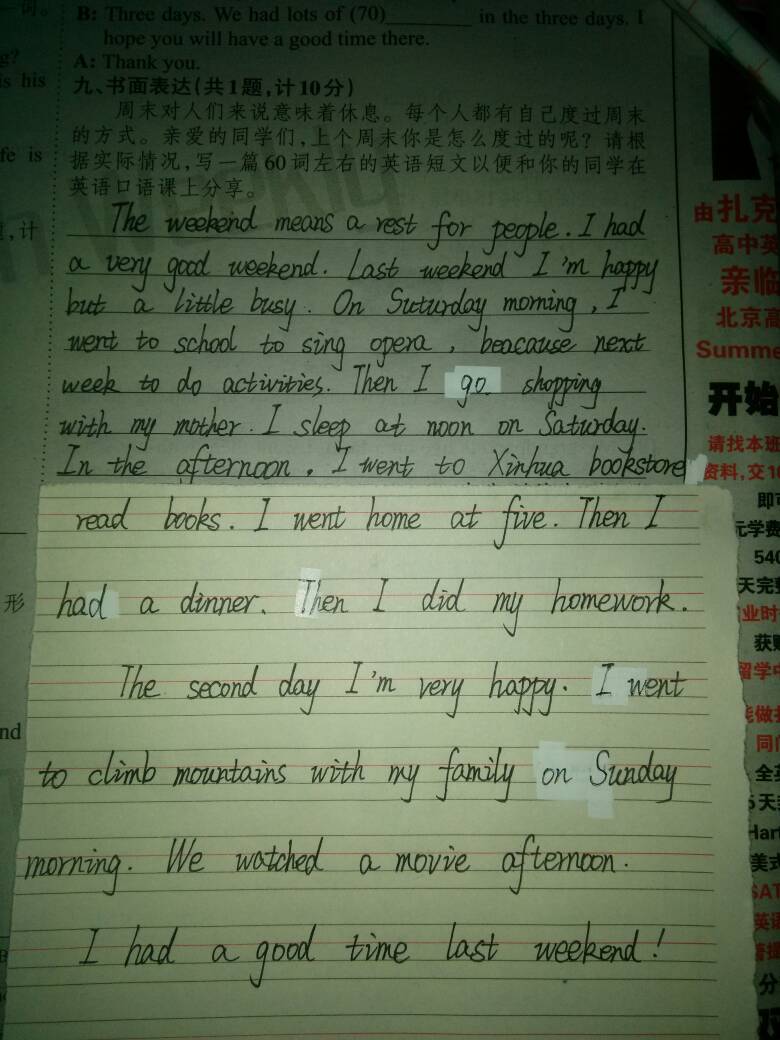 词。
B: Three days. We had lots of (70)________ in the three days. I
hope you will have a good time there.
g?
A: Thank you.
is his
九、书面表达(共1题,计10分)
周末对人们来说意味着休息。每个人都有自己度过周末
的方式。亲爱的同学们,上个周末你是怎么度过的呢?请根
fe is
据实际情况,写一篇60词左右的英语短文以便和你的同学在
英语口语课上分享。
,计
The weekend means a rest for people. I had
a very good weekend. Last weekend I'm happy
but a little busy. On Suturday morning, I
went to school to sing opera, beacause next
week to do activities. Then I go shopping
with my mother. I sleep at noon on Saturday.
In the afternoon, I went to Xinhua bookstore
read books. I went home at five. Then I
形
had a dinner. Then I did my homework.
The second day I'm very happy. I went
nd
to climb mountains with my family on Sunday
morning. We watched a movie afternoon.
I had a good time last weekend!
由扎克
高中英
亲临
北京高
Summe
开始
请找本班
资料,交1
即可
元学费
540
天完
业时
获
留学
能做
同
全
5天
Har
美式
SAT
英语
分